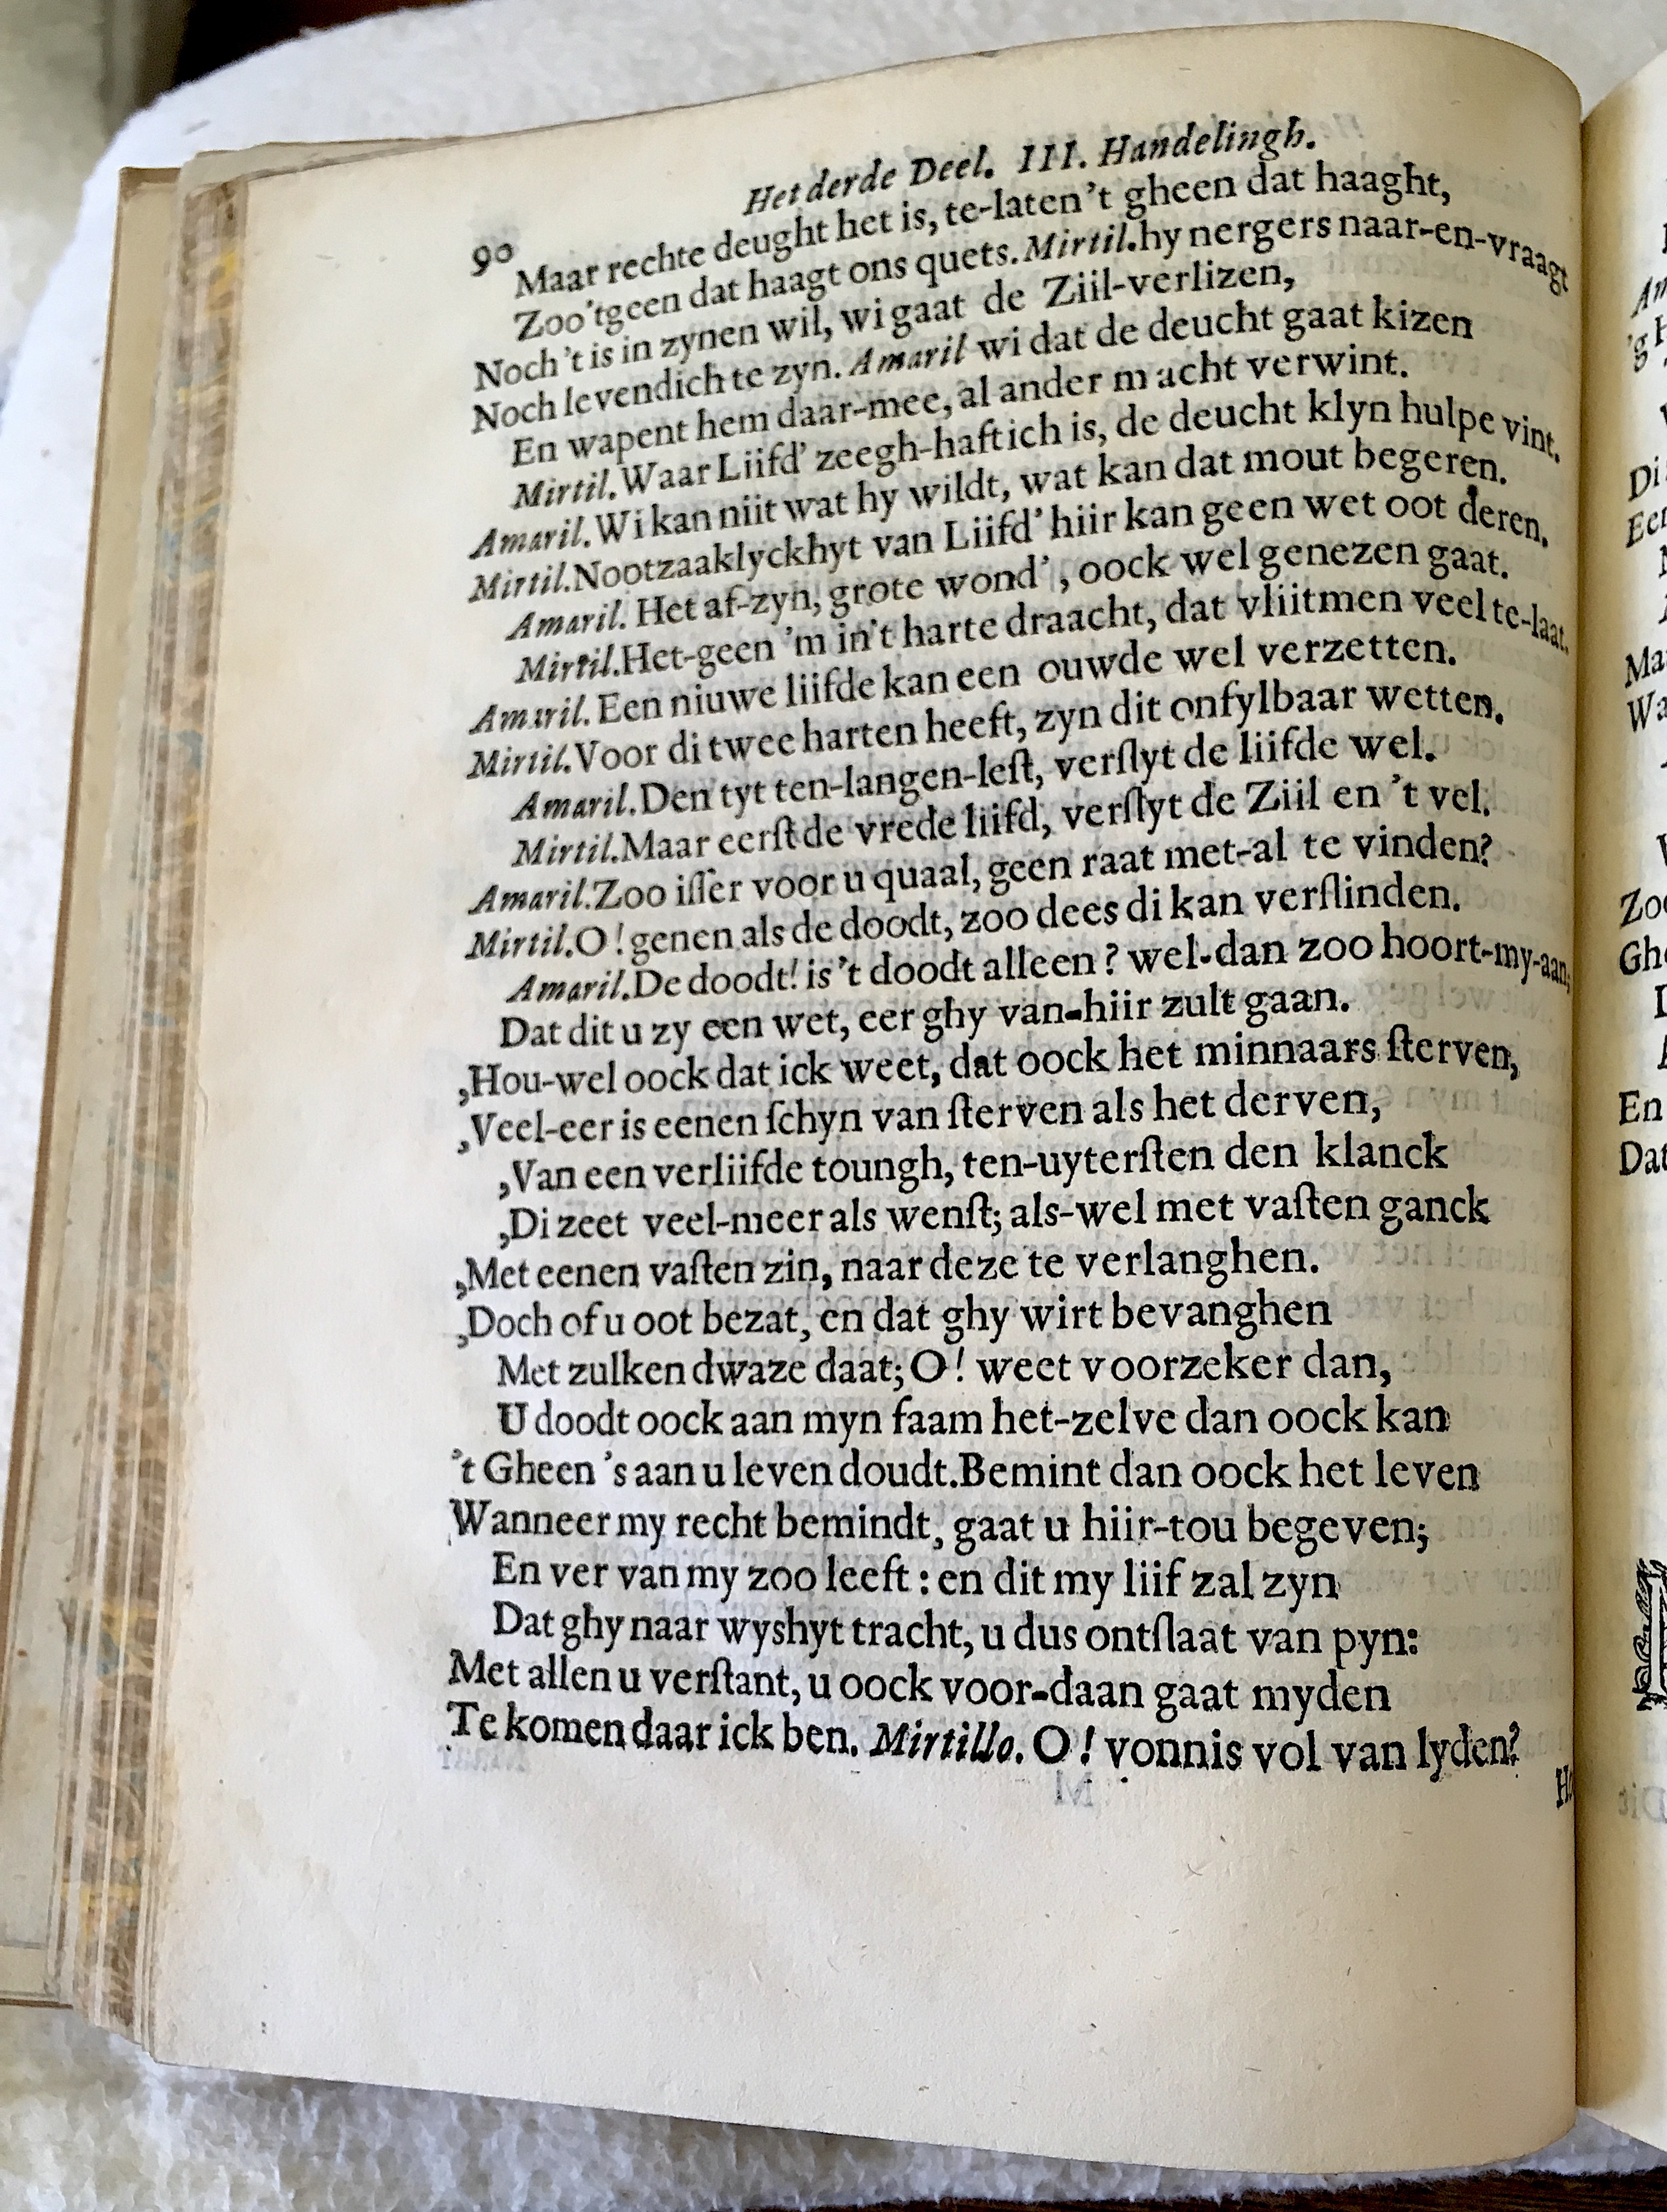 90 Het derde Deel. III. Handelingh.
Maar rechte deught het is, te-laten 't gheen dat haaght,
Zoo 'tgeen dat haagt ons quets. Mirtil. hy nergers naar-en-vraagt
Noch 't is in zynen wil, wi gaat de Ziil-verlizen,
Noch levendich te zyn. Amaril wi dat de deucht gaat kizen
En wapent hem daar-mee, al ander macht verwint.
Mirtil. Waar Liifd' zeegh-haftich is, de deucht klyn hulpe vint.
Amaril. Wi kan niit wat hy wildt, wat kan dat mout begeren.
Mirtil. Nootzaaklyckhyt van Liifd' hiir kan geen wet oot deren.
Amaril. Het af-zyn, grote wond', oock wel genezen gaat.
Mirtil. Het-geen 'm in't harte draacht, dat vliitmen veel te-laat.
Amaril. Een niuwe liifde kan een ouwde wel verzetten.
Mirtil. Voor di twee harten heeft, zyn dit onfylbaar wetten.
Amaril. Den tyt ten-langen-leſt, verſlyt de liifde wel.
Mirtil. Maar eerſt de vrede liifd, verſlyt de Ziil en 't vel.
Amaril. Zoo iſſer voor u quaal, geen raat met-al te vinden?
Mirtil. O! genen als de doodt, zoo dees di kan verſlinden.
Amaril. De doodt! is 't doodt alleen? wel-dan zoo hoort-my-aan;
Dat dit u zy een wet, eer ghy van-hiir zult gaan.
,Hou-wel oock dat ick weet, dat oock het minnaars ſterven,
,Veel-eer is eenen ſchyn van ſterven als het derven,
,Van een verliifde toungh, ten-uyterſten den klanck
,Di zeet veel-meer als wenſt; als-wel met vaſten ganck
,Met eenen vaſten zin, naar deze te verlanghen.
,Doch of u oot bezat, en dat ghy wirt bevanghen
Met zulken dwaze daat; O! weet voorzeker dan,
U doodt oock aan myn faam het-zelve dan oock kan
't Gheen 's aan u leven doudt. Bemint dan oock het leven
Wanneer my recht bemindt, gaat u hiir-tou begeven;
En ver van my zoo leeft: en dit my liif zal zyn
Dat ghy naar wyshyt tracht, u dus ontſlaat van pyn:
Met allen u verſtant, u oock voor-daan gaat myden
Te komen daar ick ben. Mirtillo. O! vonnis vol van lyden?